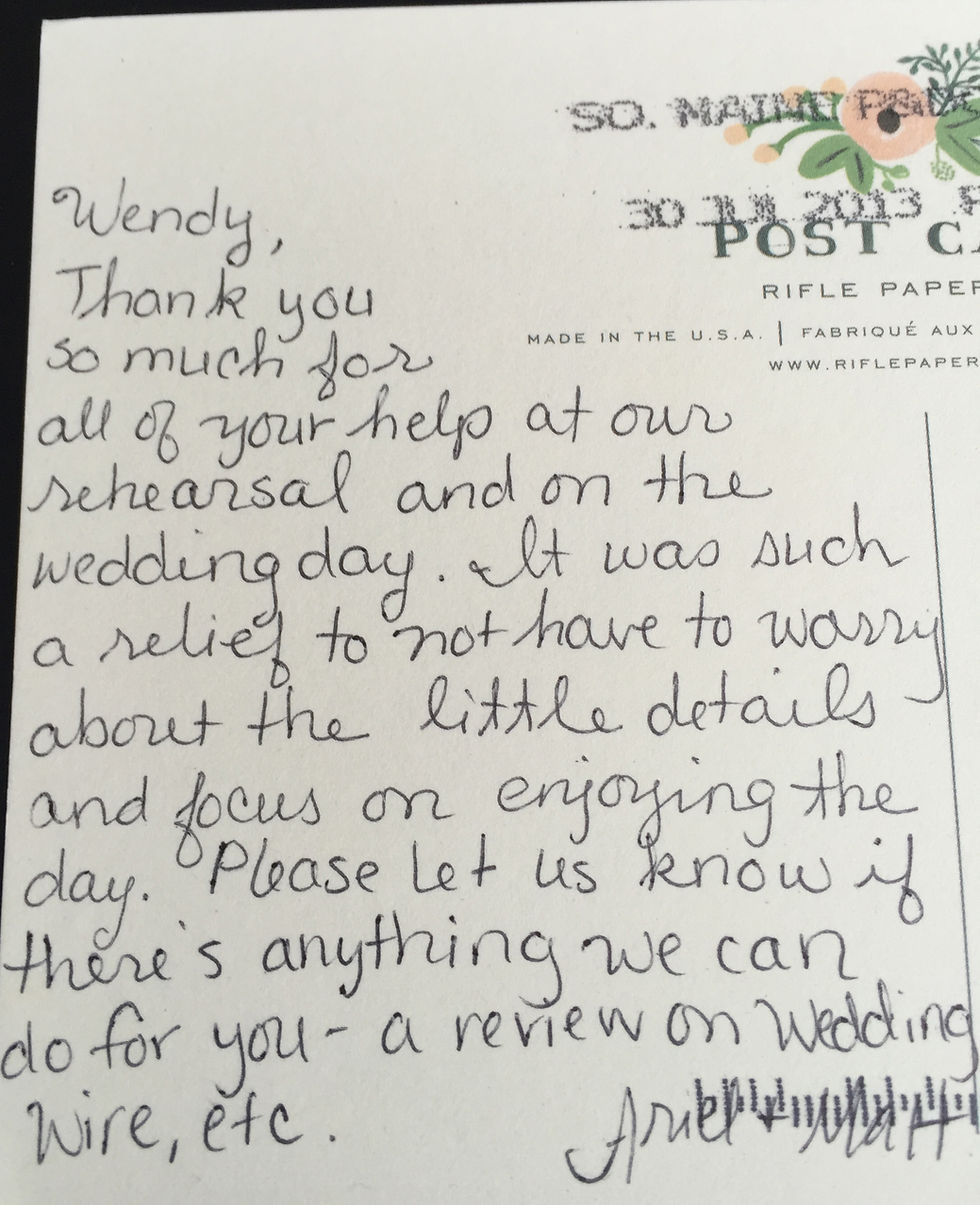 SO. MAINE P&DC
30 JUL 2013 P
POST CA
RIFLE PAPER
MADE IN THE U.S.A. | FABRIQUÉ AUX
WWW.RIFLEPAPER
Wendy,
Thank you
so much for
all of your help at our
rehearsal and on the
wedding day. It was such
a relief to not have to worry
about the little details
and focus on enjoying the
day. Please let us know if
there's anything we can
do for you - a review on Wedding
Wire, etc.
Ariel + Matt